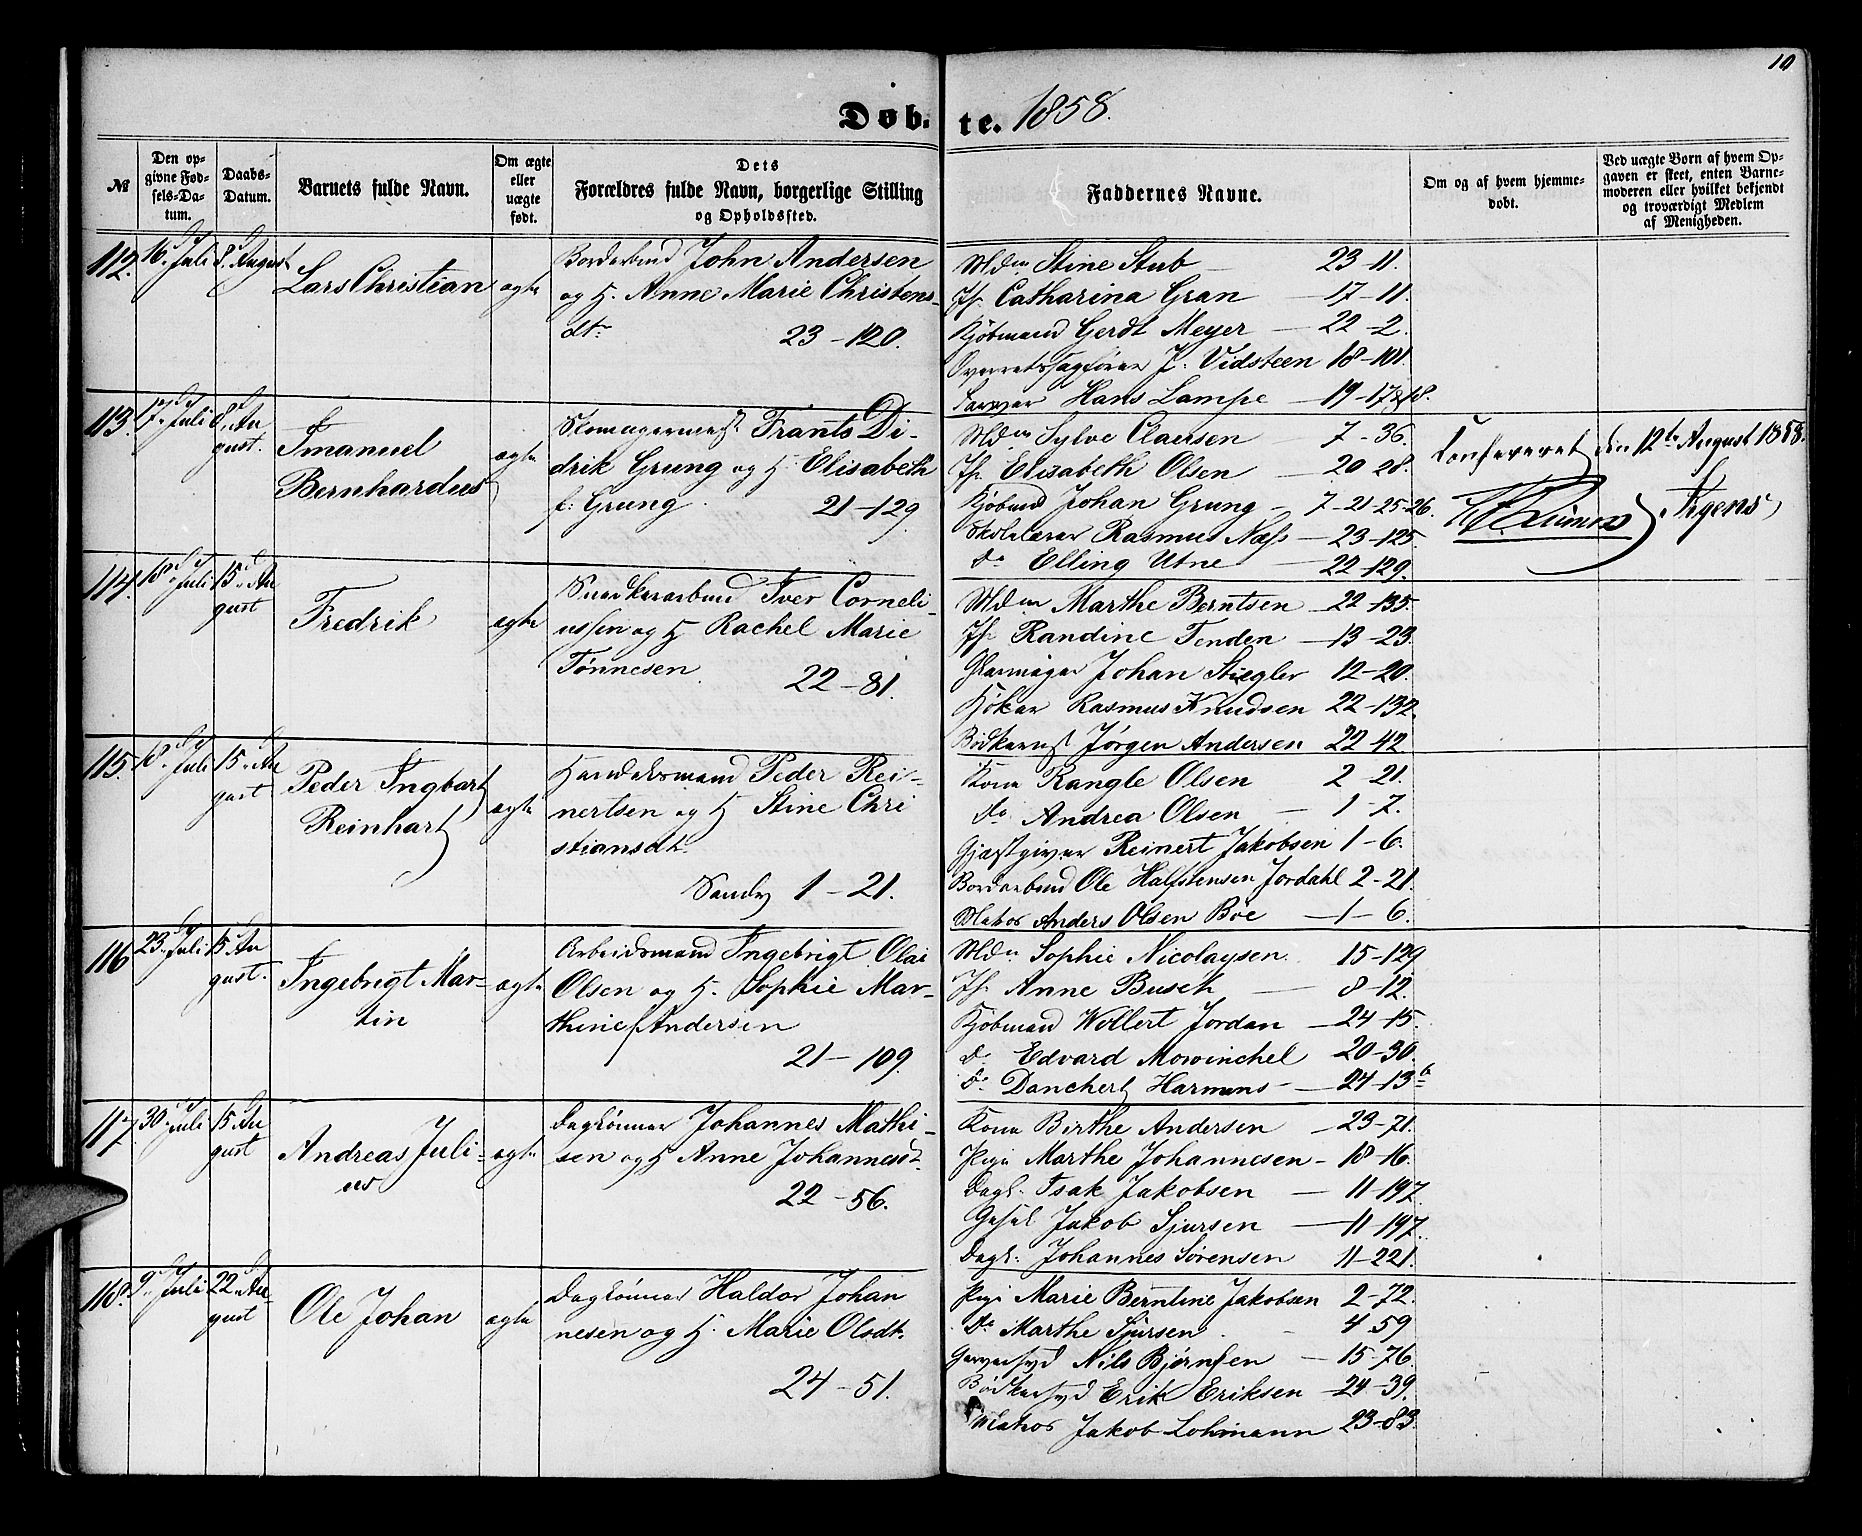 10
Døb. te. 1858.
№
Den op-
givne Fød-
sels-Da-
tum.
Daabs-
Datum.
Barnets fulde Navn.
Om ægte
eller
uægte
født.
Dets
Forældres fulde Navn, borgerlige Stilling
og Opholdssted.
Faddernes Navne.
Om og af hvem hjemme-
døbt.
Ved uægte Børn af hvem Op-
gaven er skeet, enten Barne-
moderen eller hvilket bekjendt
og troværdigt Medlem
af Menigheden.
112. 16. Juli 8. August
Lars Christian
ægte
Bordarbmd John Andersen
og H. Anne Marie Christens-
dtr
23-120.
Mdm Stine Stub 23-11.
Jf. Catharina Gran 17-11.
Kjøbmand Gerdt Meyer 22-2.
Overretssagfører J. Vidsteen 18-101.
Farver Hans Lampe 19-17&18.
113. 17. Juli 8. Au
gust.
Imanuel
Bernhardus
ægte
Skomagermest Frants Di-
drik Grung og H. Elisabeth
f. Grung
21-129
Mdm Sylve Claersen 7-36.
Jf. Elisabeth Olsen 20-28.
Kjøbmd Johan Grung 7-21-25-26.
Skolelærer Rasmus Næss 23-125.
do Elling Utne 22-129.
Confereret den 12te August 1858.
114. 18. Juli 15. Au
gust
Fredrik
ægte
Snedkerarbmd Iver Corneli-
ussen og H Rachel Marie
Tønnesen
22-81.
Mdm Marthe Berntsen 22-135.
Jf Randine Tenden 13-23.
Glarmager Johan Stiegler 12-20.
Rasmus Knudsen 22-132.
Bødkerms Jørgen Andersen 22-42.
115. 18. Juli 15. Au
gust
Peder Ingbart
Reinhart
ægte
Handelsmand Peder Rei-
nertsen og H Stine Chri
stiansdt.
Sandv 1-21.
Kone Rangle Olsen 2-21.
do Andrea Olsen 1-7.
Gjæstgiver Reinert Jakobsen 1-6.
Bordarbmd Ole Halfstensen Jordahl 2-21.
Matros Anders Olsen Böe 1-6.
116 23. Juli 15. Au
gust.
Ingebrigt Mar-
tin
ægte
Arbeidsmand Ingebrigt Olai
Olsen og H. Sophie Mar-
thine Andersen
21-109.
Mdm Sophie Nicolaysen 15-129
Jf. Anne Busch 8-12.
Kjøbmand Wollert Jordan 24-15.
do Edvard Mowinchel 20-30.
do Danchert Harmens 24-13b
117. 30. Juli 15. Au
gust
Andreas Juli-
us
ægte
Daglønner Johannes Mathi-
sen og H Anne Johannesdt.
22-56.
Kone Birthe Andersen 23-71.
Pige Marthe Johannesen 18-16.
Dagl. Isak Jakobsen 11-197.
Jakob Sjursen 11-147.
Dagl. Johannes Sørensen 11-221.
118. 9. Juli 22. Au-
gust
Ole Johan
ægte
Daglønner Haldor Johan
nesen og H. Marie Olsdt.
24-51.
Pige Marie Berntine Jakobsen 2-72.
do Marthe Sjursen 4-59
Nils Bjørnsen 15-76.
Erik Eriksen 24-39.
Matros Jakob Lohmann 23-83.